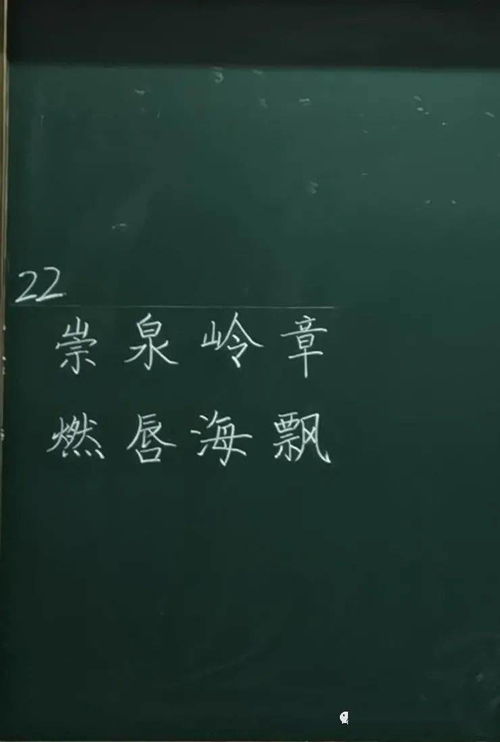 22
崇 泉 岭 章
燃 唇 海 飘